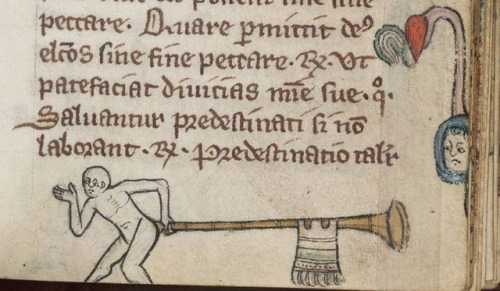 peccare. Quare pmittit de⁹
elcōs sine fine peccare. ℞. Ut
patefaciat divicias mīe sue. qͦ.
Salvantur predestinati si nō
laborant. ℞. Predestinatio talr